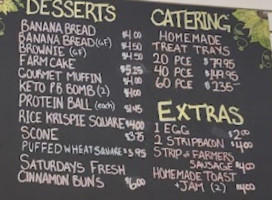 DESSERTS
BANANA BREAD $4.00
BANANA BREAD (GF) $4.50
BROWNIE (GF) $4.50
FARM CAKE
GOURMET MUFFIN $4.00
KETO PB BOMB (2) $4.00
PROTEIN BALL (each) $2.45
RICE KRISPIE SQUARE $4.00
SCONE $3.75
PUFFED WHEAT SQUARE $3.95
SATURDAYS FRESH
CINNAMON BUNS $6.00
CATERING
HOMEMADE
TREAT TRAYS
20 PCE $79.95
40 PCE
60 PCE $235-
EXTRAS
1 EGG $2.00
2 STRIP BACON $4.00
STRIP FARMERS
SAUSAGE $4.00
HOMEMADE TOAST
+ JAM (2) $4.00